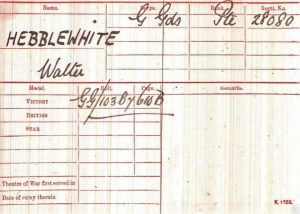 Name. Corps. Rank. Regtl. No.
HEBBLEWHITE G Gds Pte 28080
Walter
Medal. Roll. Page. Remarks.
VICTORY GG/103 B7 610B
BRITISH
STAR
Theatre of War first served in
Date of entry therein
K. 1380.